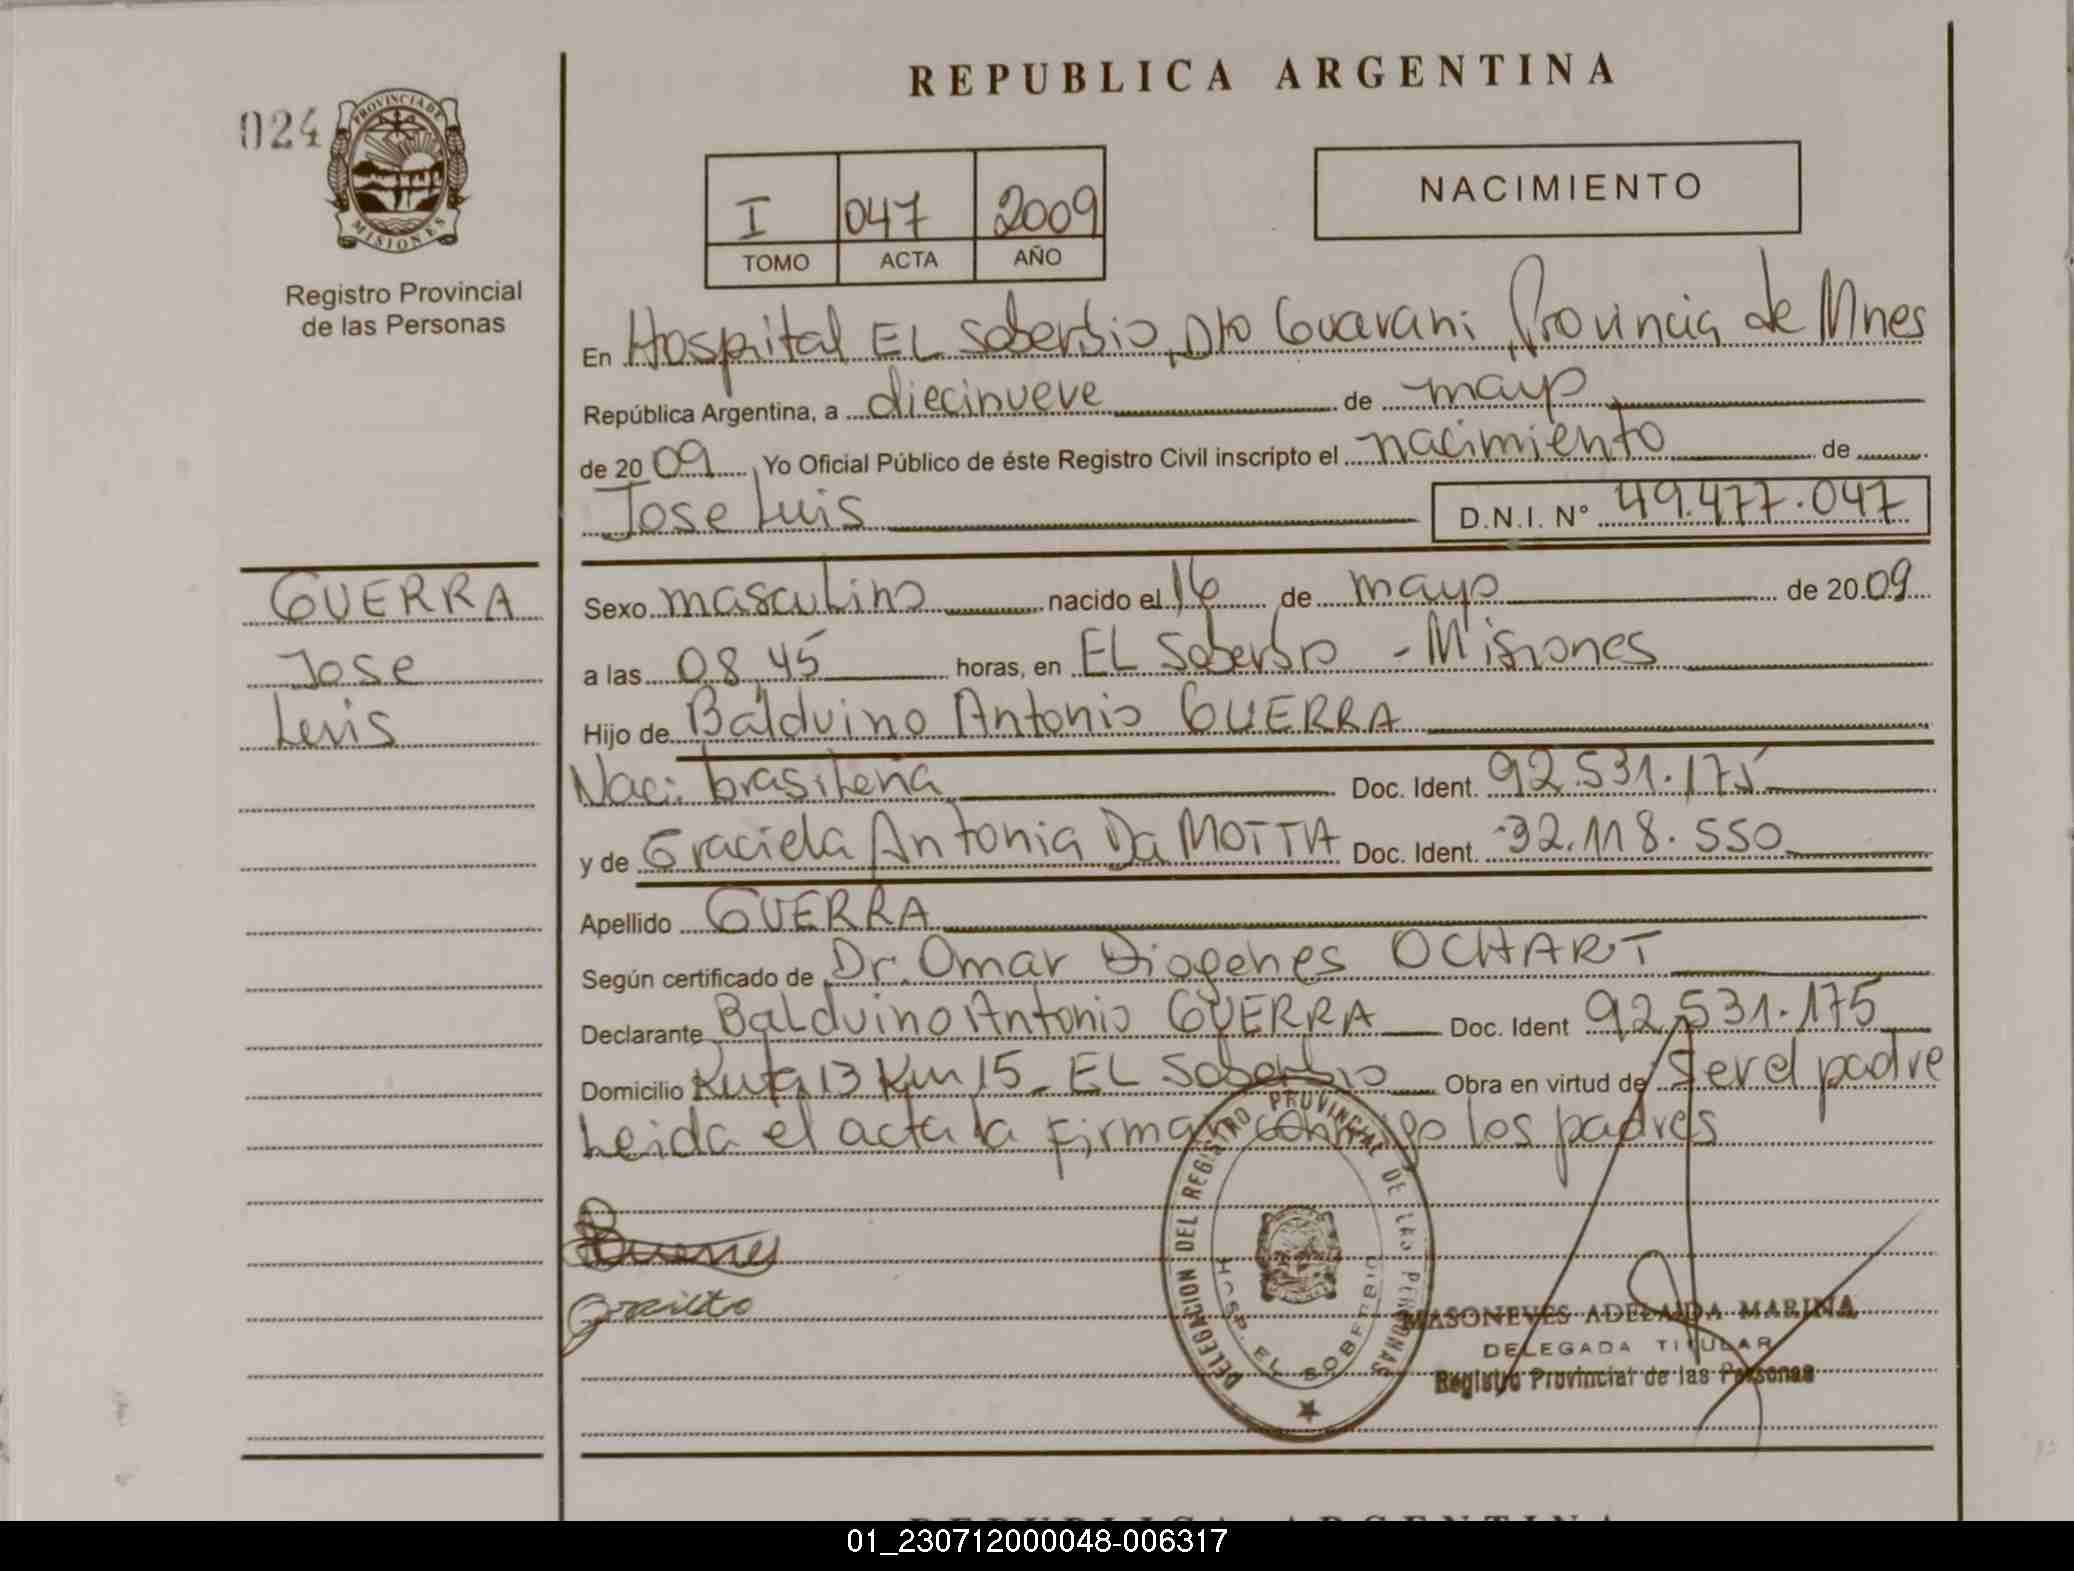 024
PROVINCIA DE
MISIONES
Registro Provincial
de las Personas
REPUBLICA ARGENTINA
I 047 2009
TOMO ACTA AÑO
NACIMIENTO
En Hospital EL Soberbio, Dto Guarani, Provincia de Mnes
República Argentina, a diecinueve de mayo
de 2009, Yo Oficial Público de éste Registro Civil inscripto el nacimiento de
Jose Luis D.N.I. Nº 49.477.047
GUERRA
Jose
Luis
Sexo masculino nacido el 16 de mayo de 2009
a las 08,45 horas, en EL Soberbio - Misiones
Hijo de Balduino Antonio GUERRA
Naci: brasileña Doc. Ident. 92.531.175
y de Graciela Antonia Da MOTTA Doc. Ident. 32.118.550
Apellido GUERRA
Según certificado de Dr. Omar Diogenes OCHART
Declarante Balduino Antonio GUERRA Doc. Ident 92.531.175
Domicilio Ruta 13 Km 15 - EL Soberbio Obra en virtud de Ser el padre
Leida el acta la firman conmigo los padres
DELEGACION DEL REGISTRO PROVINCIAL DE LAS PERSONAS
HOSP. EL SOBERBIO
MASONEVES ADELAIDA MARINA
DELEGADA TITULAR
Registro Provincial de las Personas
REPUBLICA ARGENTINA
01_230712000048-006317